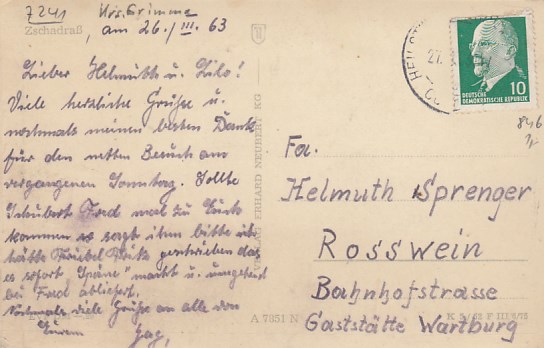 7241 Krs. Grimma
Zschadraß, am 26./III. 63
Lieber Helmuth u. Lilo!
Viele herzliche Grüße u.
nochmals meinen besten Dank
für den netten Besuch am
vergangenen Sonntag. Sollte
Schubert Fred mal zu Euch
kommen so sagt ihm bitte ich
hätte geschrieben das
es sofort "Späne" markt u. umgehend
bei Fred abliefert.
Nochmals viele Grüße an alle von
Eurem
VERLAG ERHARD NEUBERT KG
10
DEUTSCHE
DEMOKRATISCHE REPUBLIK
27.
846
Fa.
Helmuth Sprenger
Rosswein
Bahnhofstrasse
Gaststätte Wartburg
A 7851 N